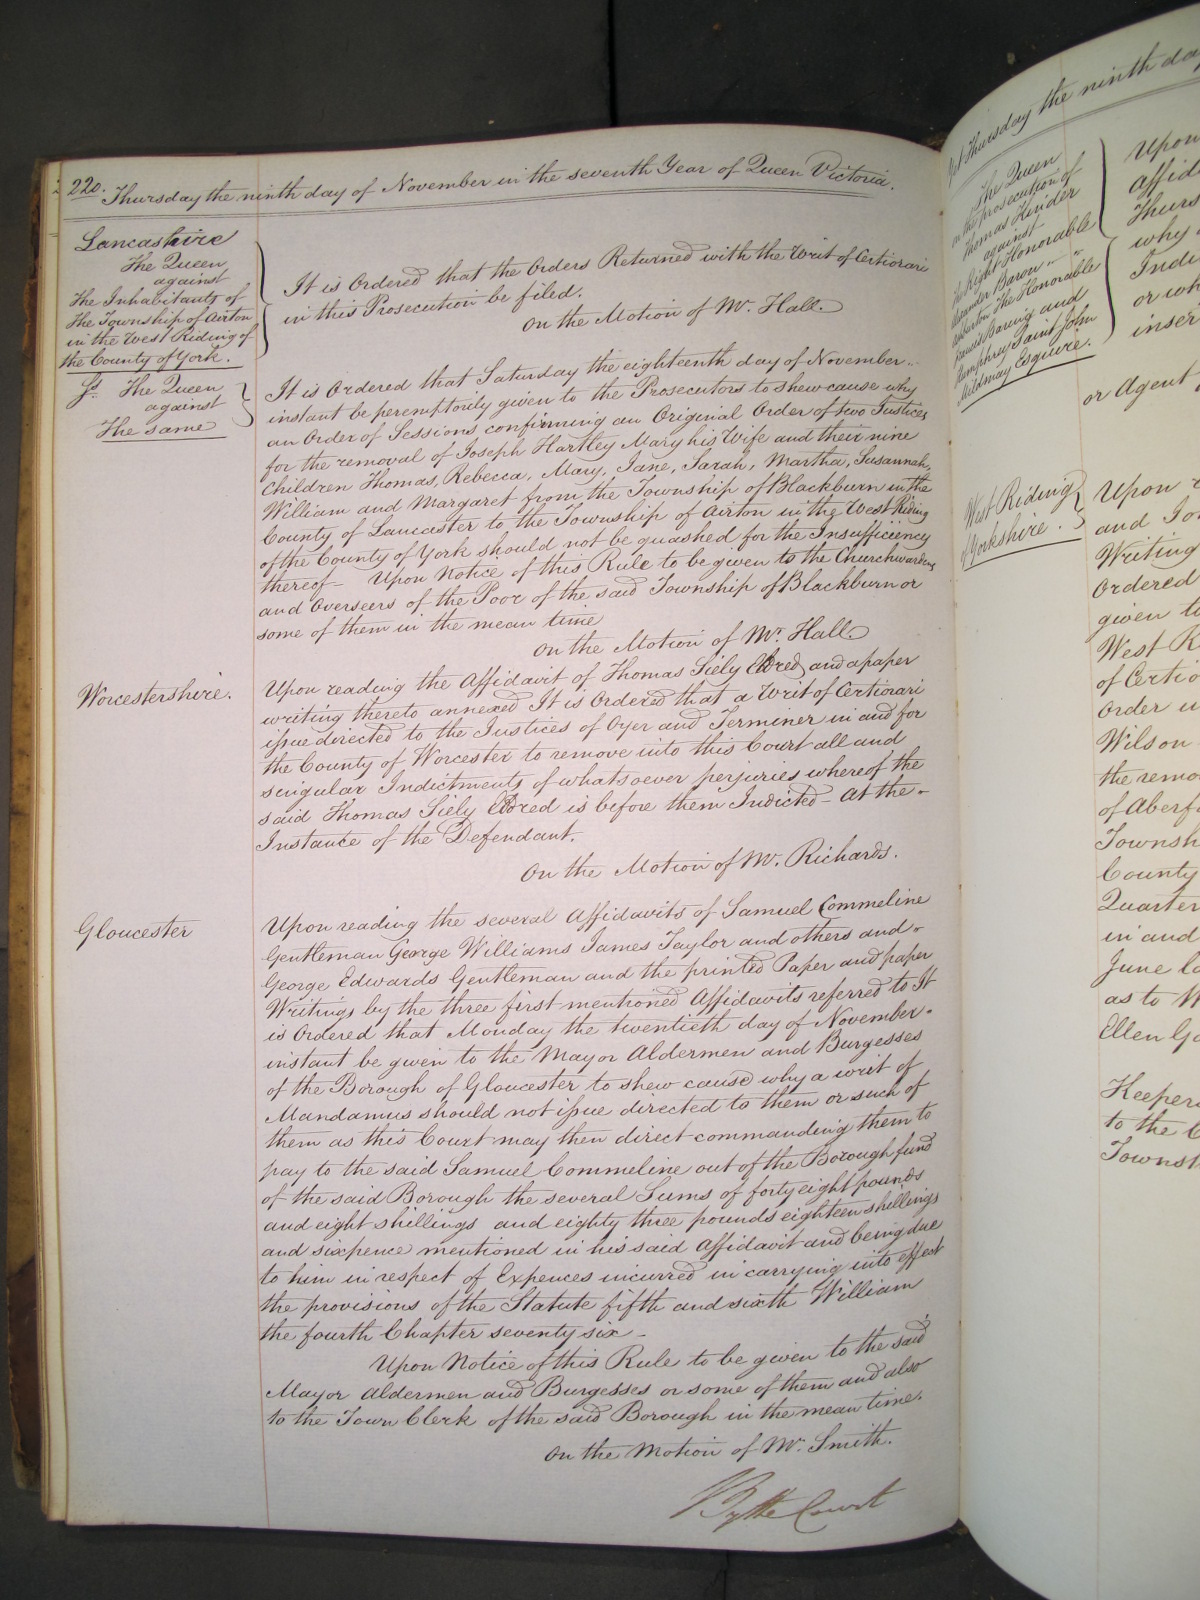 220.
Thursday the ninth day of November in the seventh Year of Queen Victoria.
Lancashire
The Queen
against
The Inhabitants of
the Township of Airton
in the West Riding of
the County of York.
It is Ordered that the Orders Returned with the Writ of Certiorari
in this Prosecution be filed.
On the Motion of Mr. Hall.
The Queen
against
The same
It is Ordered that Saturday the eighteenth day of November
instant be peremptorily given to the Prosecutors to shew cause why
an Order of Sessions confirming an Original Order of two Justices
for the removal of Joseph Hartley Mary his Wife and their nine
Children Thomas, Rebecca, Mary, Jane, Sarah, Martha, Susannah,
William and Margaret from the Township of Blackburn in the
County of Lancaster to the Township of Airton in the West Riding
of the County of York should not be quashed for the Insufficiency
thereof – Upon Notice of this Rule to be given to the Churchwardens
and Overseers of the Poor of the said Township of Blackburn or
some of them in the mean time
On the Motion of Mr. Hall.
Worcestershire.
Upon reading the Affidavit of Thomas Siely Eldred and a paper
writing thereto annexed It is Ordered that a Writ of Certiorari
issue directed to the Justices of Oyer and Terminer in and for
the County of Worcester to remove into this Court all and
singular Indictments of whatsoever perjuries whereof the
said Thomas Siely Eldred is before them Indicted – At the –
Instance of the Defendant.
On the Motion of Mr. Richards.
Gloucester
Upon reading the several Affidavits of Samuel Commeline
Gentleman George Williams James Taylor and others and –
George Edwards Gentleman and the printed Paper and paper
Writings by the three first mentioned Affidavits referred to It
is Ordered that Monday the twentieth day of November –
instant be given to the Mayor Aldermen and Burgesses
of the Borough of Gloucester to shew cause why a writ of
Mandamus should not issue directed to them or such of
them as this Court may then direct commanding them to
pay to the said Samuel Commeline out of the Borough fund
of the said Borough the several Sums of forty eight pounds
and eight shillings and eighty three pounds eighteen shillings
and sixpence mentioned in his said Affidavit and being due
to him in respect of Expences incurred in carrying into effect
the provisions of the Statute fifth and sixth William
the fourth Chapter seventy six –
Upon Notice of this Rule to be given to the said
Mayor Aldermen and Burgesses or some of them and also
to the Town Clerk of the said Borough in the mean time.
On the Motion of Mr. Smith.
By the Court
Thursday the ninth day
The Queen
on the prosecution of
Thomas Hinder
against
Right Honorable
Baron
The Honorable
Baring and
Humphrey Saint John
Mildmay Esquire.
Upon
Affid
Thurs
why
Indi
or wh
inser
or Agent
West Riding
of Yorkshire.
Upon
and
Writing
Ordered
given to
West R
of Certio
Order
Wilson
the remo
of Aberf
Townsh
County
Quarter
in and
June la
as to
Ellen Ga
Keepers
to the
Townsh